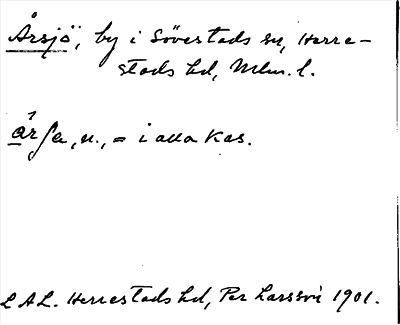 Årsjö, by i Sövestads sn, Herre-
stads hd, Mlm. l.
årʃa, n., = i alla kas.
LAL. Herrestads hd, Per Larsson 1901.